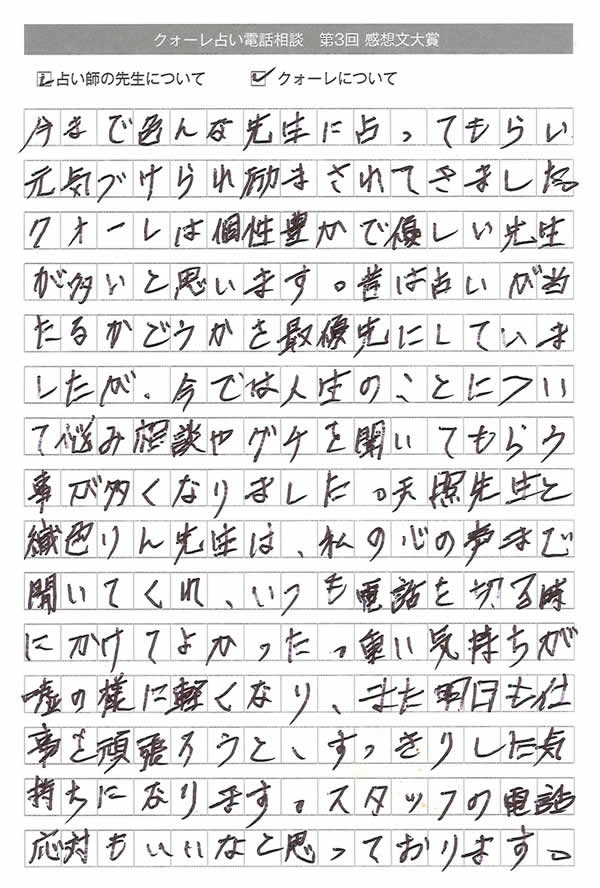 クォーレ占い電話相談　第3回 感想文大賞
占い師の先生について　クォーレについて
今まで色んな先生に占ってもらい
元気づけられ励まされてきました。
クォーレは個性豊かで優しい先生
が多いと思います。昔は占いが当
たるかどうかを最優先にしていま
したが、今では人生のことについ
て悩み相談やグチを聞いてもらう
事が多くなりました。天照先生と
繊色りん先生は、私の心の声まで
聞いてくれ、いつも電話を切る時
にかけてよかった。重い気持ちが
嘘の様に軽くなり、また明日も仕
事を頑張ろうと、すっきりした気
持ちになります。スタッフの電話
応対もいいなと思っております。